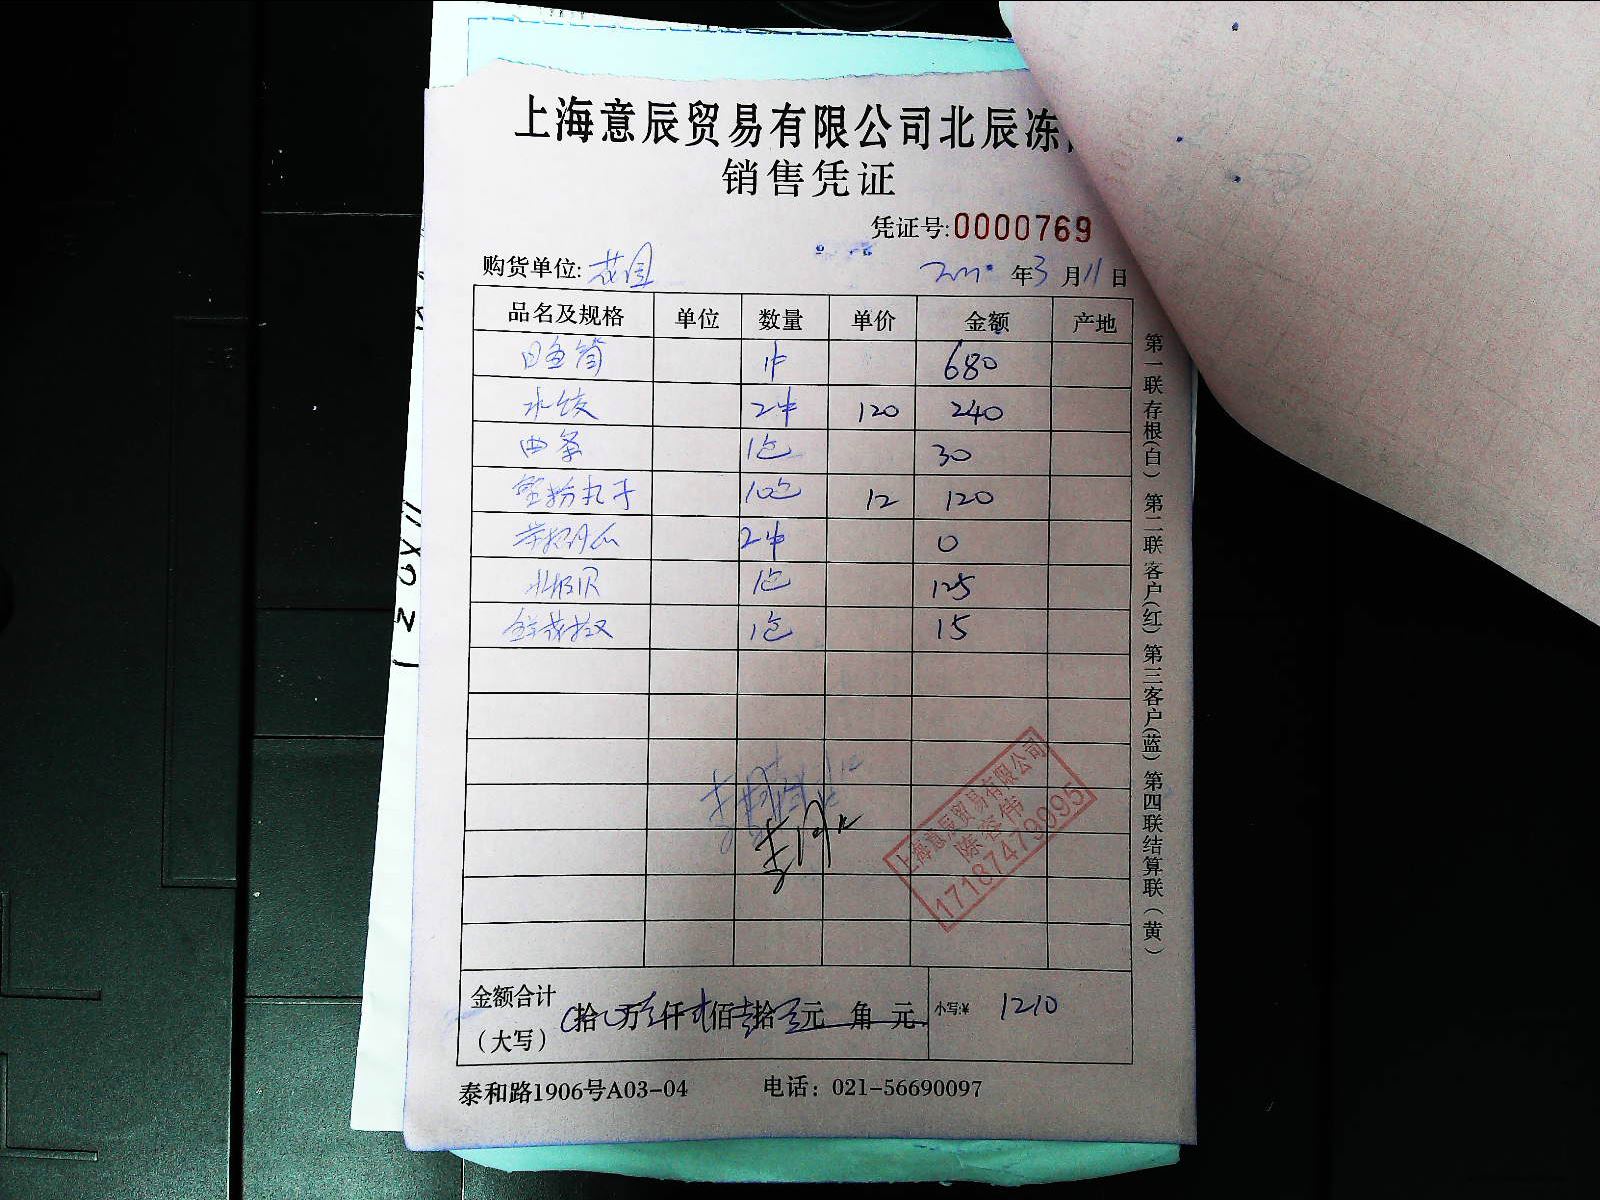 上海意辰贸易有限公司北辰冻
销售凭证
凭证号:0000769
购货单位: 花园 年3月11日
品名及规格 单位 数量 单价 金额 产地
1件 680
水饺 2件 120 240
1包 30
丸子 10包 12 120
2件 0
北极贝 1包 125
1包 15
上海意辰贸易有限公司
17187479995
金额合计
(大写) 拾 万 仟 佰 拾 元 角 元 小写:¥ 1210
泰和路1906号A03-04 电话: 021-56690097
第一联存根(白) 第二联客户(红) 第三客户(蓝) 第四联结算联(黄)